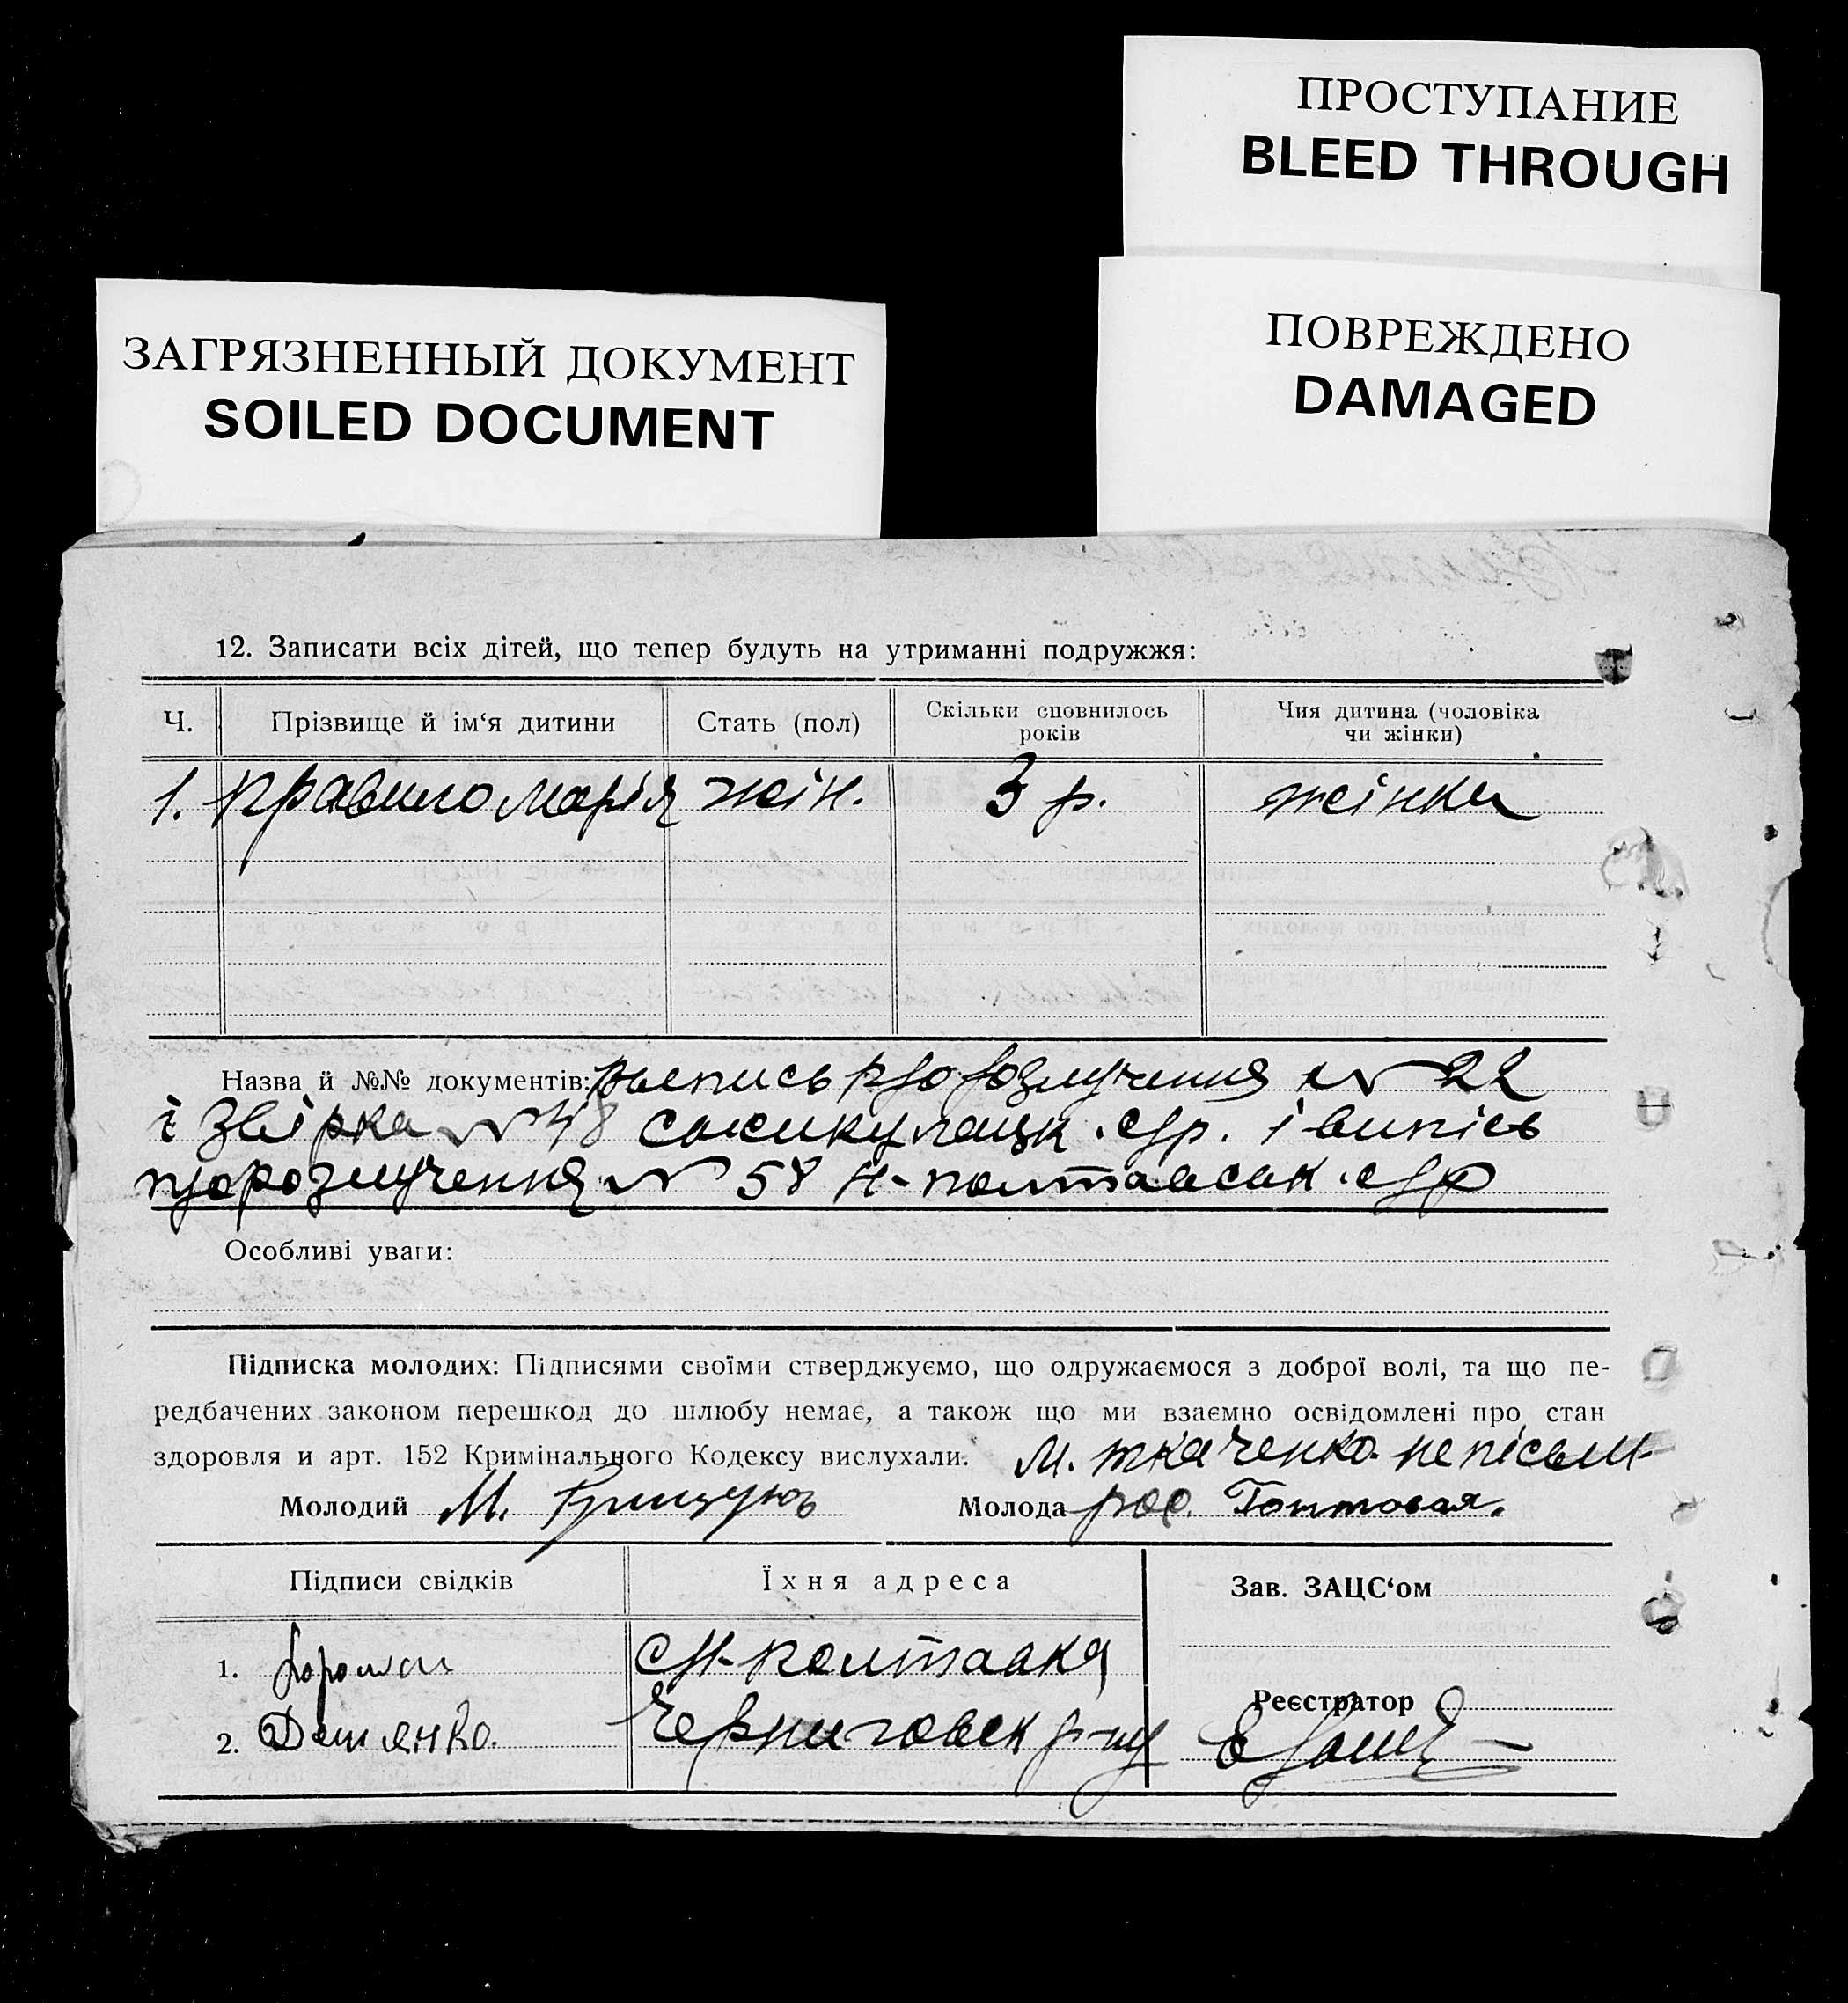 ПРОСТУПАНИЕ
BLEED THROUGH
ЗАГРЯЗНЕННЫЙ ДОКУМЕНТ
SOILED DOCUMENT
ПОВРЕЖДЕНО
DAMAGED
12. Записати всіх дітей, що тепер будуть на утриманні подружжя:
Ч. Прізвище й ім‘я дитини Стать (пол) Скільки сповнилось років Чия дитина (чоловіка чи жінки)
1. Правило Марія жін. 3 р. жінки
Назва й №№ документів: випись про розлучення № 22
і звірка № 48 с/р. і випісь
про розлучення № 58 Н-полтавськ. с/р
Особливі уваги:
Підписка молодих: Підписями своїми стверджуємо, що одружаємося з доброї волі, та що пе-
редбачених законом перешкод до шлюбу немає, а також що ми взаємно освідомлені про стан
здоровля и арт. 152 Кримінального Кодексу вислухали. М. Ткаченко неписьм.
Молодий М. Грищуков Молода рос.
Підписи свідків Їхня адреса Зав. ЗАЦС‘ом
1. с Н-Полтавка
Реєстратор
2. Демянко. Черниговск р-ну